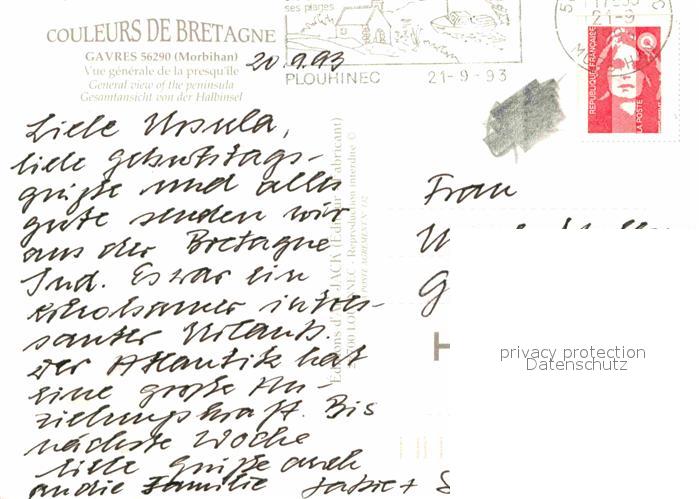 COULEURS DE BRETAGNE
GAVRES 56290 (Morbihan)
Vue générale de la presqu'île
General view of the peninsula
Gesamtansicht von der Halbinsel
ses plages
PLOUHINEC 21-9-93
21-9
REPUBLIQUE FRANÇAISE
LA POSTE
20.9.93
Liebe Ursula,
liebe Geburtstags-
grüße und alles
gute senden wir
aus der Bretagne
Süd. Es war ein
erholsamer intres-
santer Urlaub.
Der Atlantik hat
eine große An-
ziehungskraft. Bis
nächste Woche
liebe Grüße auch
an die Familie
JACK (Editeur Fabricant)
Reproduction interdite ©
Frau
privacy protection
Datenschutz